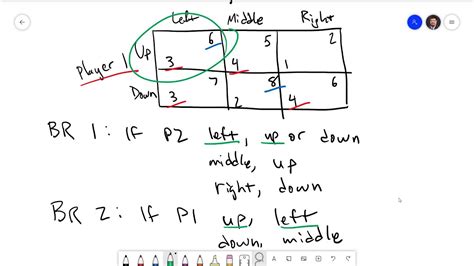 Left Middle Right
Player 1 Up 6 5 2
3 4 1
Down 7 8 6
3 2 4
BR 1: If P2 left, up or down
middle, up
right, down
BR 2: If P1 up, left
down, middle